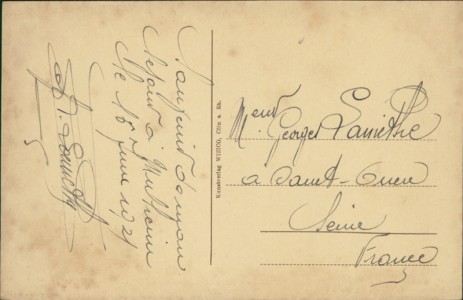 Souvenir de mon
Séjour à Mulheim
le 16 Juin 1921
Kunstverlag WIZICO, Cöln a. Rh.
Mr
Georges Lamethe
à Saint-Ouen
Seine
France